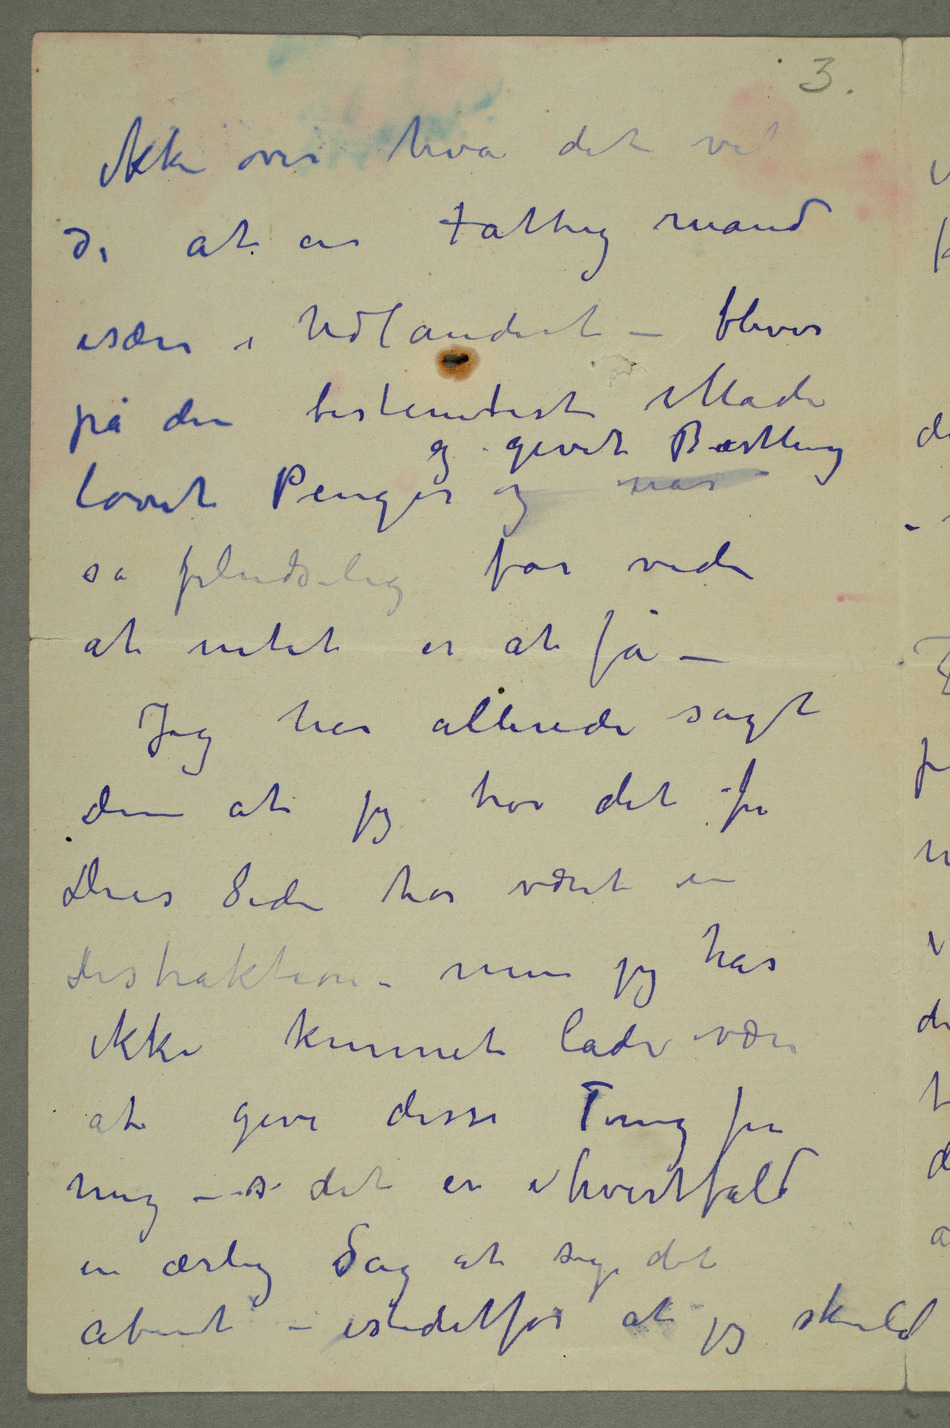 3.
ikke over hva det vil
si at en fattig mand
især i Udlandet – bliver
på den bestemteste Måde
og givet Bestilling
lovet Penger og når
så pludselig får vide
at intet er at få –
Jeg har allerede sagt
Dem at jeg tror det fra
Deres Side har været en
Distraktion – men jeg har
ikke kunnet lade være
at give disse Ting fra
mig – s det er ihvertfald
en ærlig Sag at sige det
åbent – istedetfor at jeg skuld